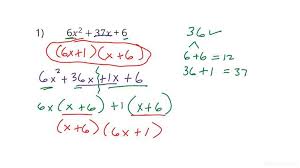 1) 6x² + 37x + 6
(6x+1)(x+6)
6x² + 36x + 1x + 6
6x(x+6) + 1(x+6)
(x+6)(6x+1)
36 ✓
6+6=12
36+1=37